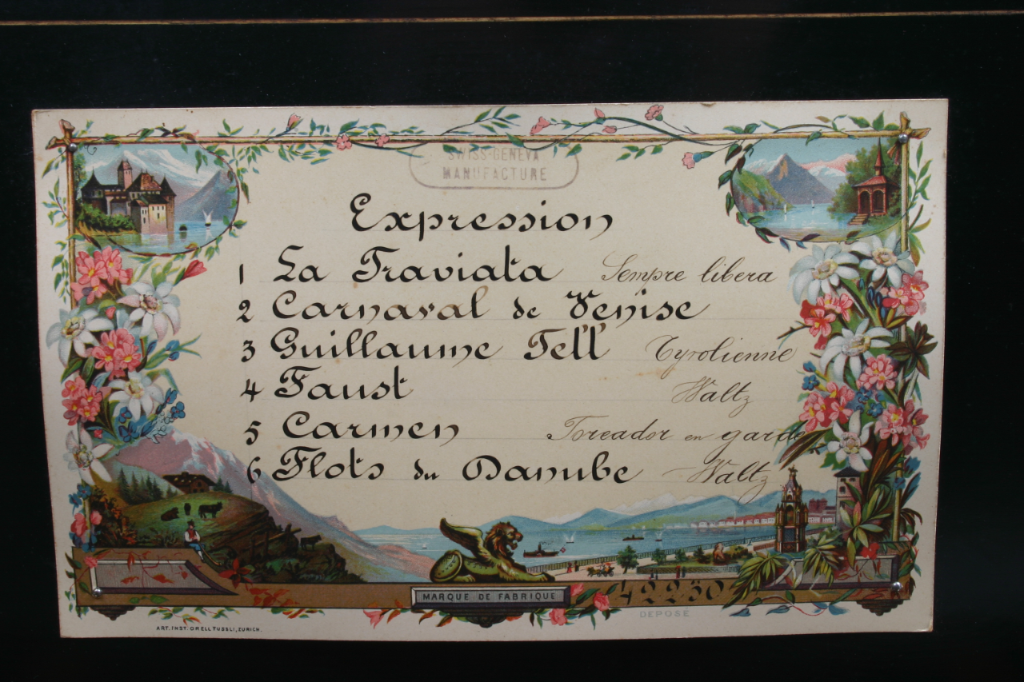 SWISS-GENEVA
MANUFACTURE
Expression
1 La Traviata Sempre libera
2 Carnaval de Venise
3 Guillaume Tell Tyrolienne
4 Faust Waltz
5 Carmen Toreador en garde
6 Flots du Danube Waltz
MARQUE DE FABRIQUE
DEPOSÉ
ART. INST. ORELL FUSSLI, ZURICH.